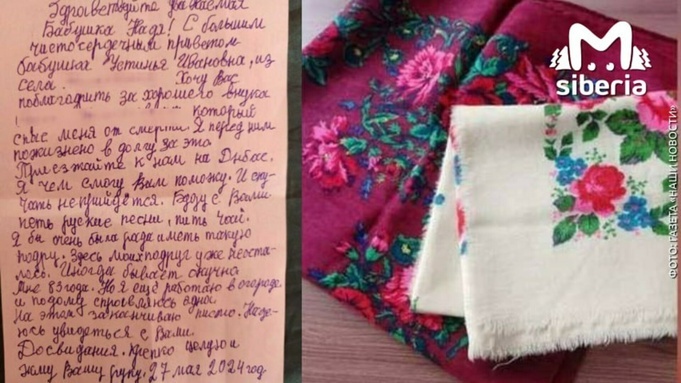 Здравствуйте уважаемая
Бабушка Надя! С большим
чистосердечным приветом
бабушка Устинья Ивановна, из
села. Хочу Вас
поблагодарить за хорошего внука
который
спас меня от смерти. Я перед ним
пожизнено в долгу за это
Приезжайте к нам на Днбас.
Я чем смогу Вам поможу. И ску-
чать не прийдется. Буду с Вами
петь русские песни, пить чай.
Я бы очень была рада иметь такую
подру. Здесь моих подруг уже неоста-
лось. Иногда бывает скучно
Мне 83 года. Но я ещё работаю в огороде
и по дому справляюсь одна.
На этом заканчиваю письмо. Наде-
юсь увидеться с Вами.
Досвидания. Крепко целую и
жму Вашу руку. 27 мая 2024 год
M
siberia
ФОТО: ГАЗЕТА «НАШИ НОВОСТИ»